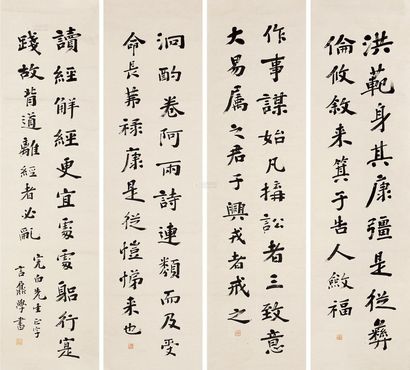 洪範身其康彊是從彝
倫攸敘来箕子告人斂福
作事謀始凡搆訟者三致意
大易属之君子興戎者戒之
泂酌卷阿兩詩連類而及受
命長茀禄康是從愷悌来也
讀經解經更宜處處躬行寔
踐故背道離經者必亂
先生正字
言鼎學書